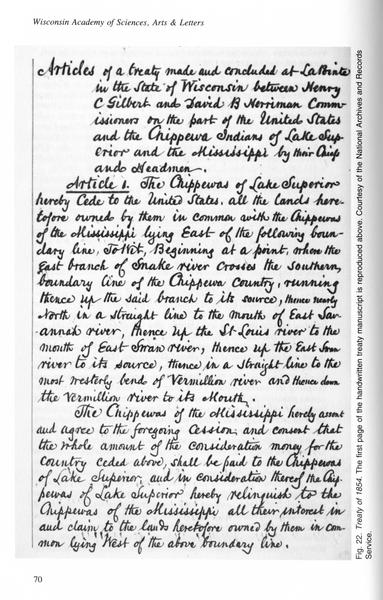 Wisconsin Academy of Sciences, Arts & Letters
Articles of a treaty made and concluded at La Pointe
in the State of Wisconsin between Henry
C Gilbert and David B Herriman Comm-
issioners on the part of the United States
and the Chippewa Indians of Lake Sup-
erior and the Mississippi by their Chiefs
and Headmen.
Article 1. The Chippewas of Lake Superior
hereby Cede to the United States, all the lands here-
tofore owned by them in Common with the Chippewas
of the Mississippi lying East of the following boun-
dary line, To Wit, Beginning at a point, where the
East branch of Snake river Crosses the Southern
boundary line of the Chippewa Country, running
thence up the said branch to its source, thence nearly
North in a straight line to the mouth of East Sav-
annah river, thence up the St Louis river to the
mouth of East Swan river, thence up the East Swan
river to its source, thence in a Straight line to the
most westerly bend of Vermillion river and thence down
the Vermillion river to its Mouth.
The Chippewas of the Mississippi hereby assent
and agree to the foregoing Cession, and consent that
the whole amount of the Consideration money for the
Country ceded above, shall be paid to the Chippewas
of Lake Superior, and in Consideration thereof the Chip-
pewas of Lake Superior hereby relinquish to the
Chippewas of the Mississippi all their interest in
and claim to the lands heretofore owned by them in Com-
mon lying West of the above boundary line.
Fig. 22. Treaty of 1854. The first page of the handwritten treaty manuscript is reproduced above. Courtesy of the National Archives and Records
Service.
70